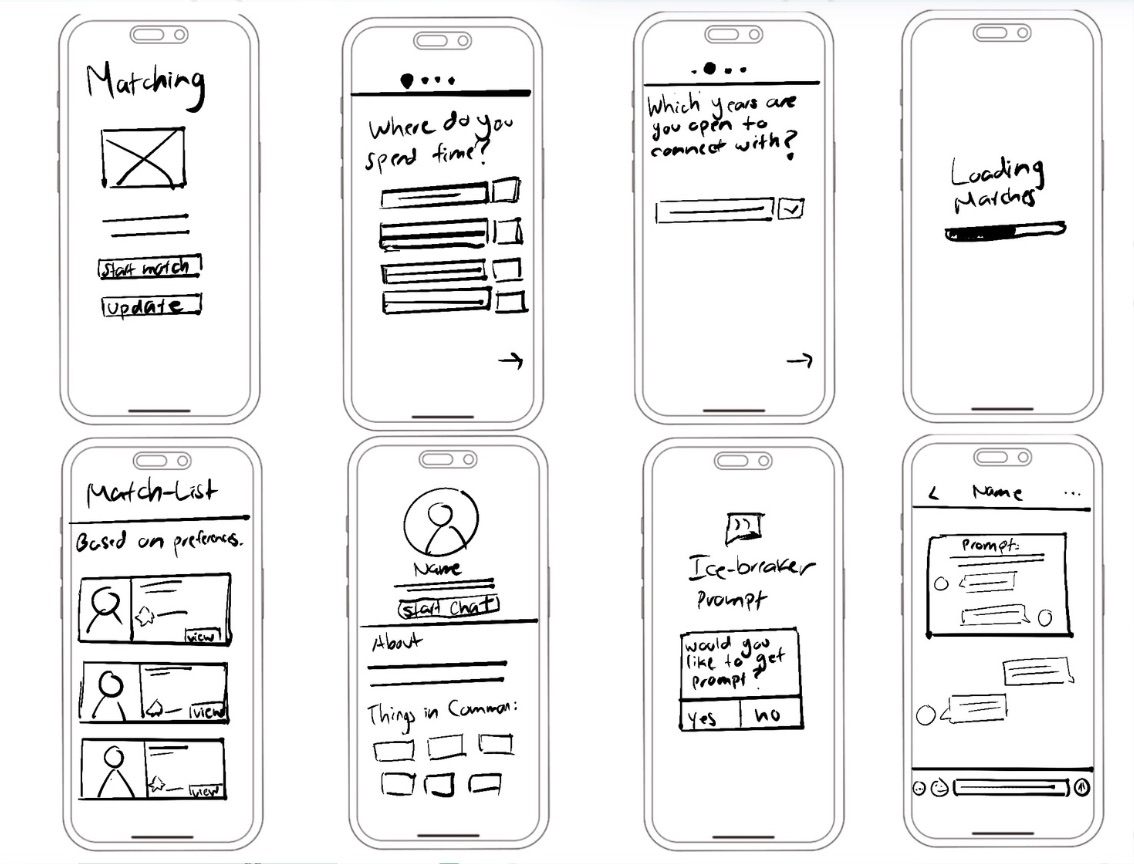 Matching
Start match
update
Where do you
spend time?
Which years are
you open to
connect with?
Loading
Matches
Match-List
Based on preferences.
view
view
view
Name
Start chat
About
Things in Common:
Ice-breaker
Prompt
would you
like to get
prompt?
yes
no
Name
Prompt: